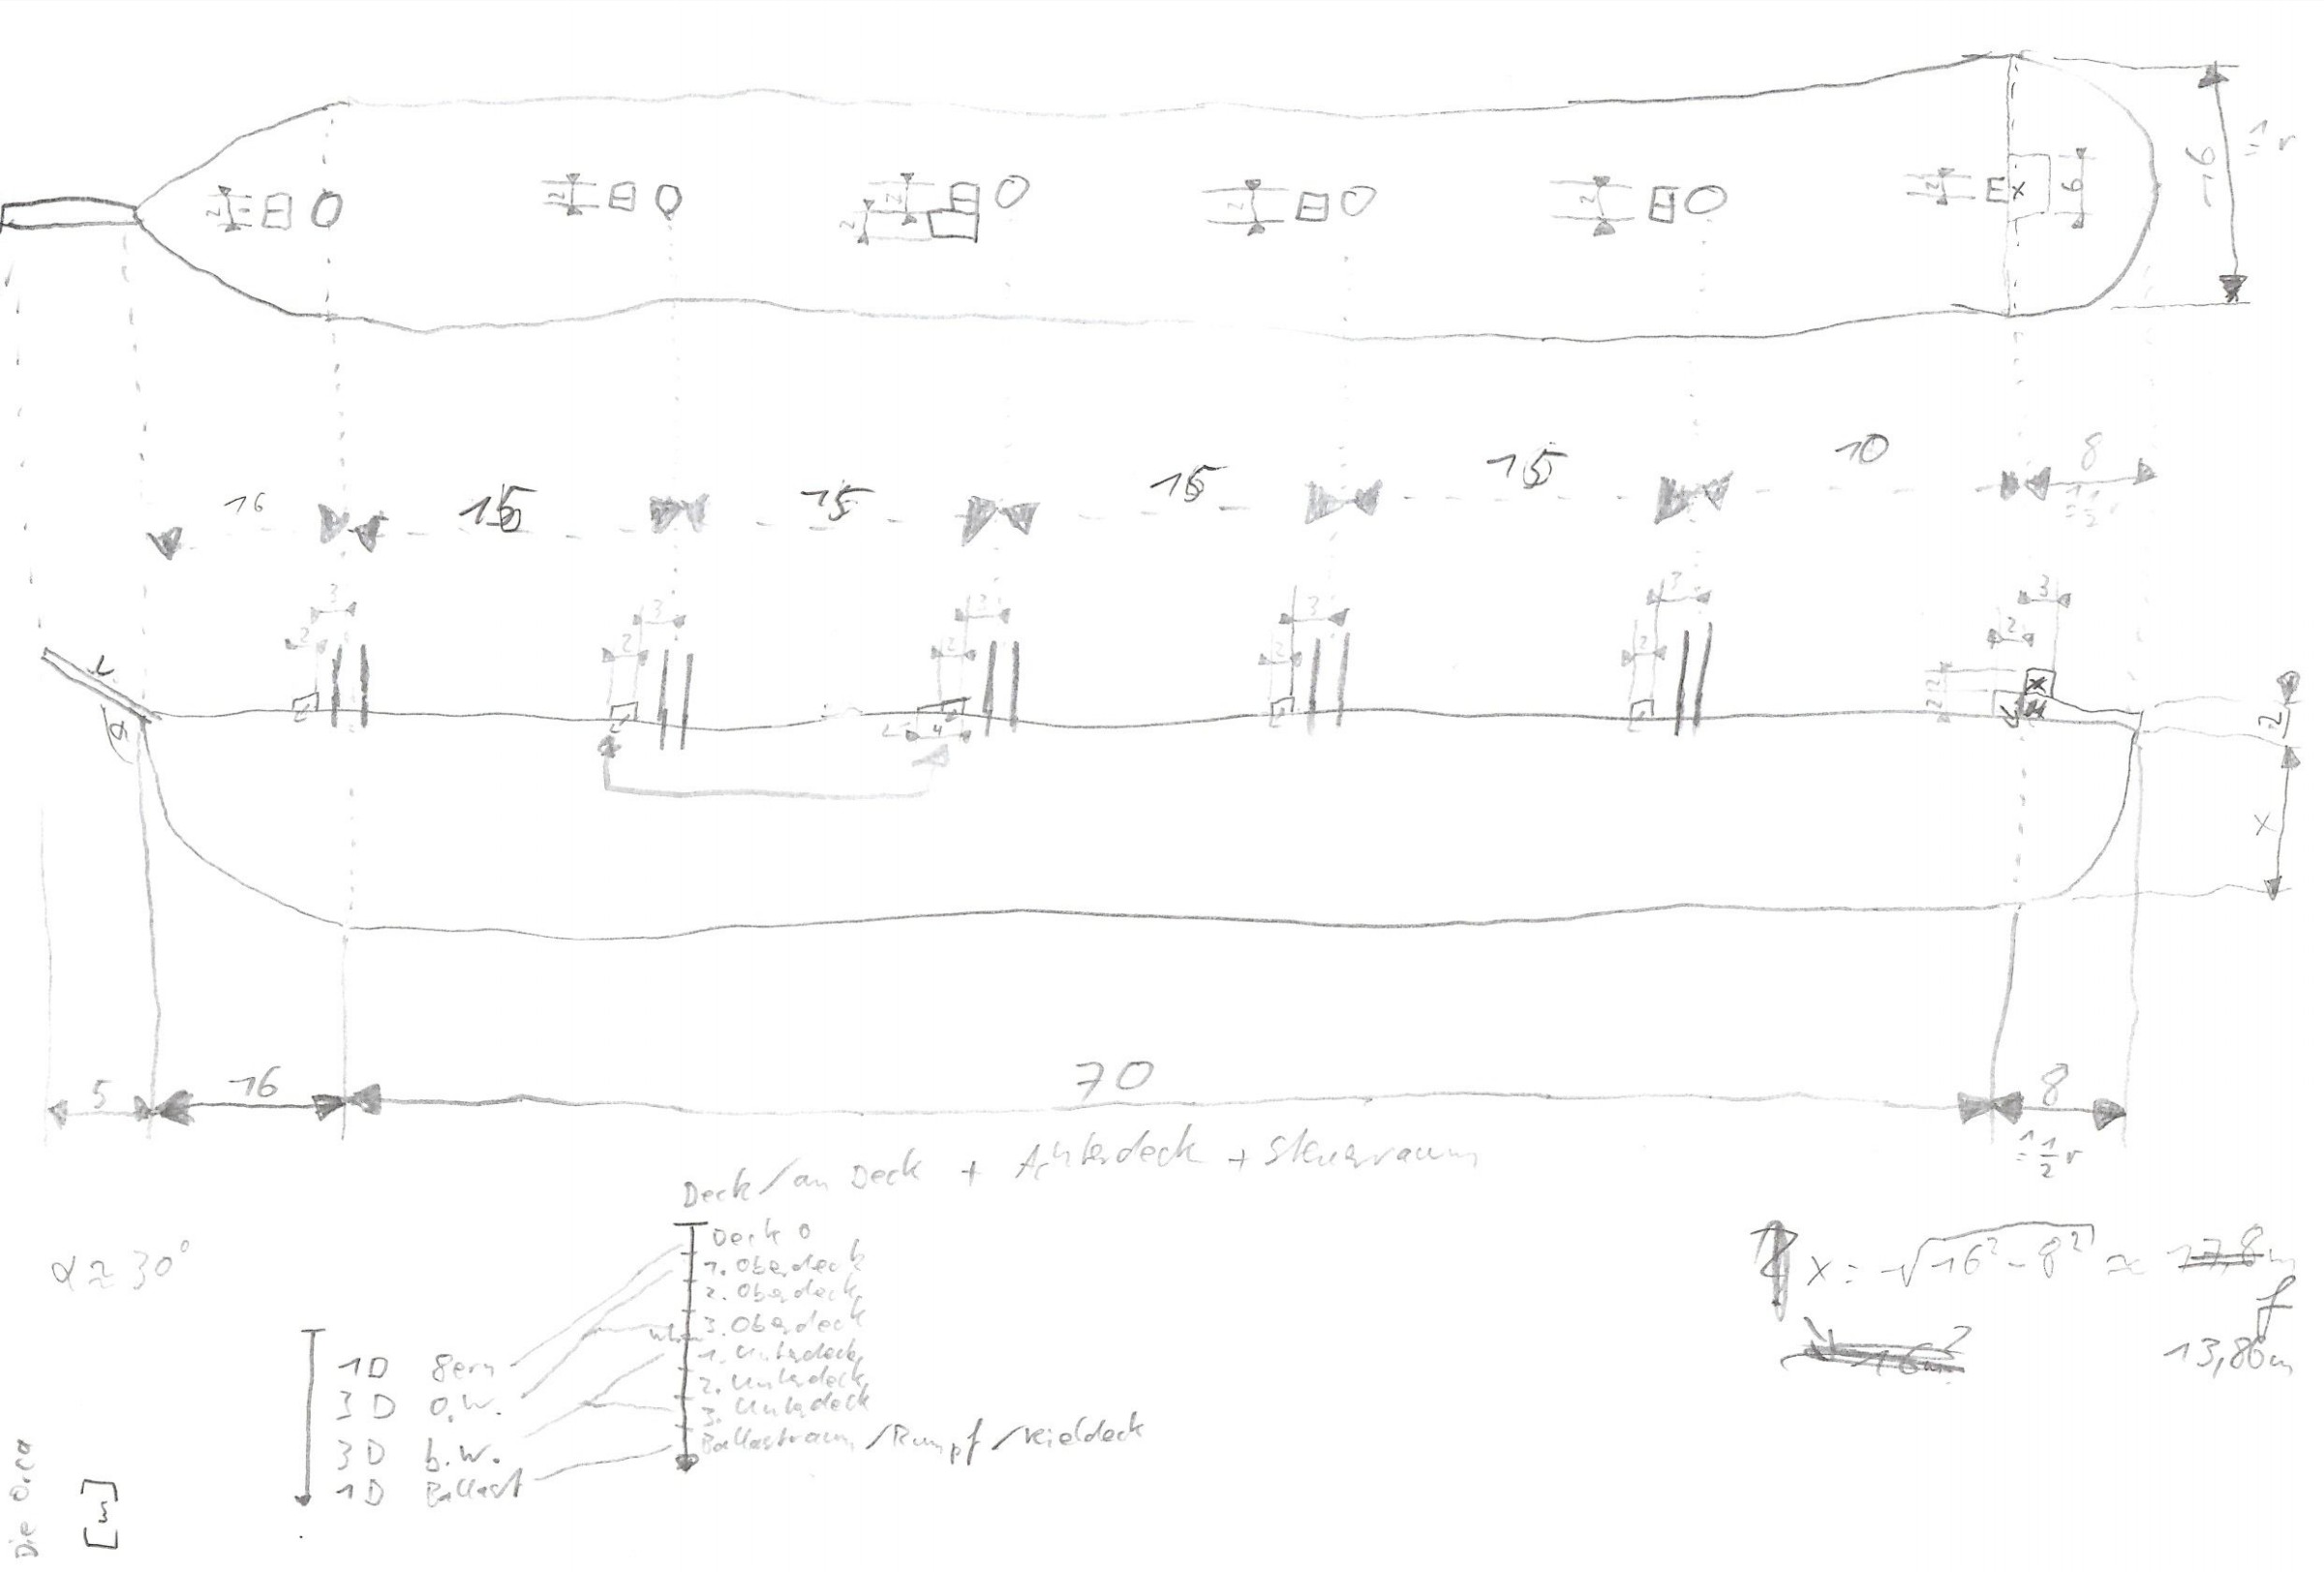 2 2 2 2 2 2 2 6 16 ≙ r
16 15 15 15 15 10 8
≙ 1/2 r
3 3 3 3 3 3
2 2 2 2 2 2
2
α
4
2
x
5 16 70 8
≙ 1/2 r
Deck/an Deck + Achterdeck + Steuerraum
Deck 0
1. Oberdeck
2. Oberdeck
3. Oberdeck
1. Unterdeck
2. Unterdeck
3. Unterdeck
Ballastraum/Rumpf/Kieldeck
α ≈ 30°
1D
3D o.W.
3D b.W.
1D Ballast
x = √16² - 8² ≈ 17,8m
13,86m
Die Orca
[m]